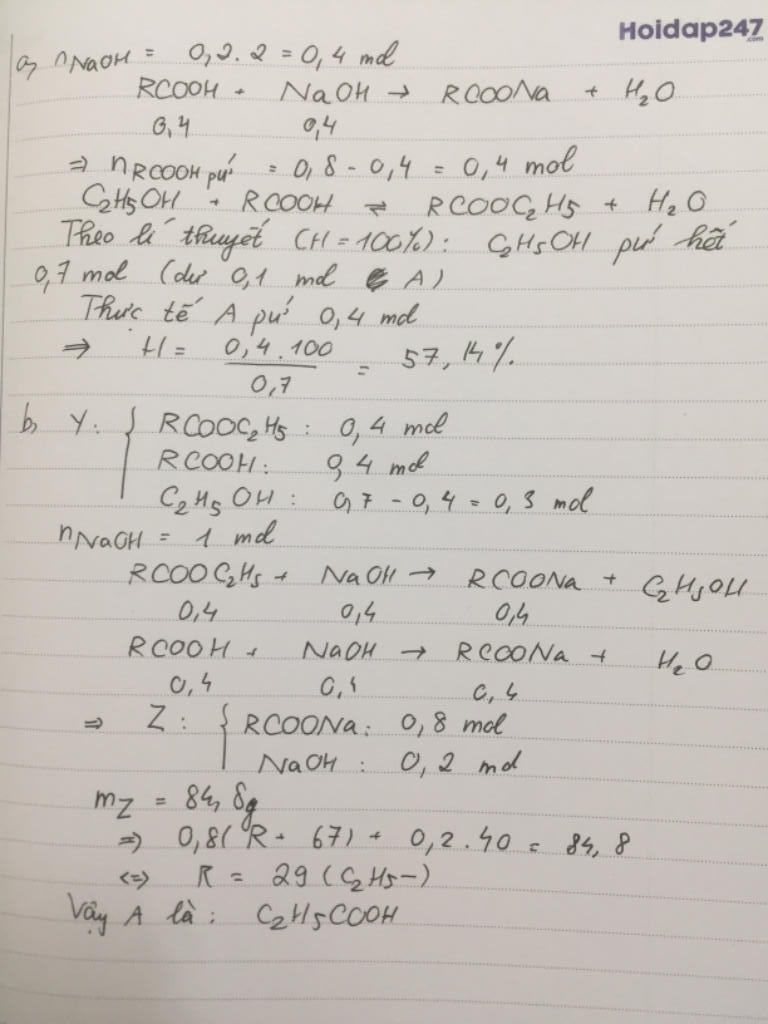 Hoidap247.com
a, nNaOH = 0,2.2 = 0,4 mol
RCOOH + NaOH → RCOONa + H₂O
0,4 0,4
⇒ nRCOOH pứ = 0,8 - 0,4 = 0,4 mol
C₂H₅OH + RCOOH ⇌ RCOOC₂H₅ + H₂O
Theo lí thuyết (H = 100%): C₂H₅OH pứ hết
0,7 mol (dư 0,1 mol A)
Thực tế A pứ 0,4 mol
⇒ H = 0,4.100 / 0,7 = 57,14%.
b, Y: { RCOOC₂H₅: 0,4 mol
RCOOH: 0,4 mol
C₂H₅OH: 0,7 - 0,4 = 0,3 mol
nNaOH = 1 mol
RCOOC₂H₅ + NaOH → RCOONa + C₂H₅OH
0,4 0,4 0,4
RCOOH + NaOH → RCOONa + H₂O
0,4 0,4 0,4
⇒ Z: { RCOONa: 0,8 mol
NaOH: 0,2 mol
mZ = 84,8g
⇒ 0,8(R + 67) + 0,2.40 = 84,8
⇔ R = 29 (C₂H₅-)
Vậy A là: C₂H₅COOH